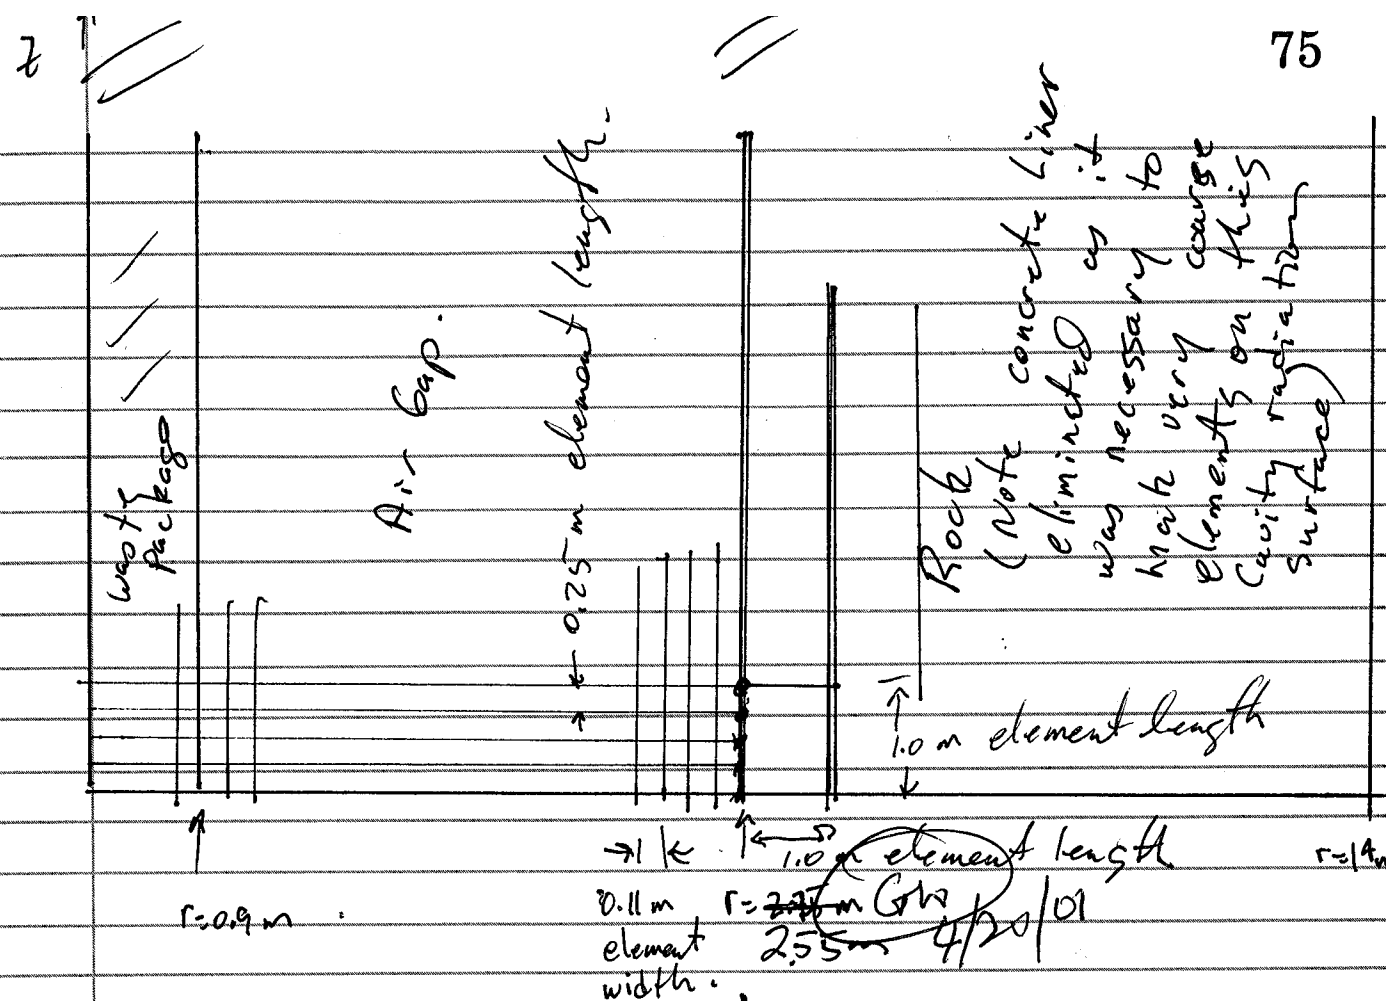 75
z
waste
package
Air Gap.
0.25 m element length.
Rock
(Note concrete Liner
eliminated as it
was necessary to
have very coarse
elements on this
cavity radiation
surface)
1.0 m element length
1.0 m element length
r=14m
r=0.9 m
0.11 m
element
width.
r=
2.55 m
4/20/01